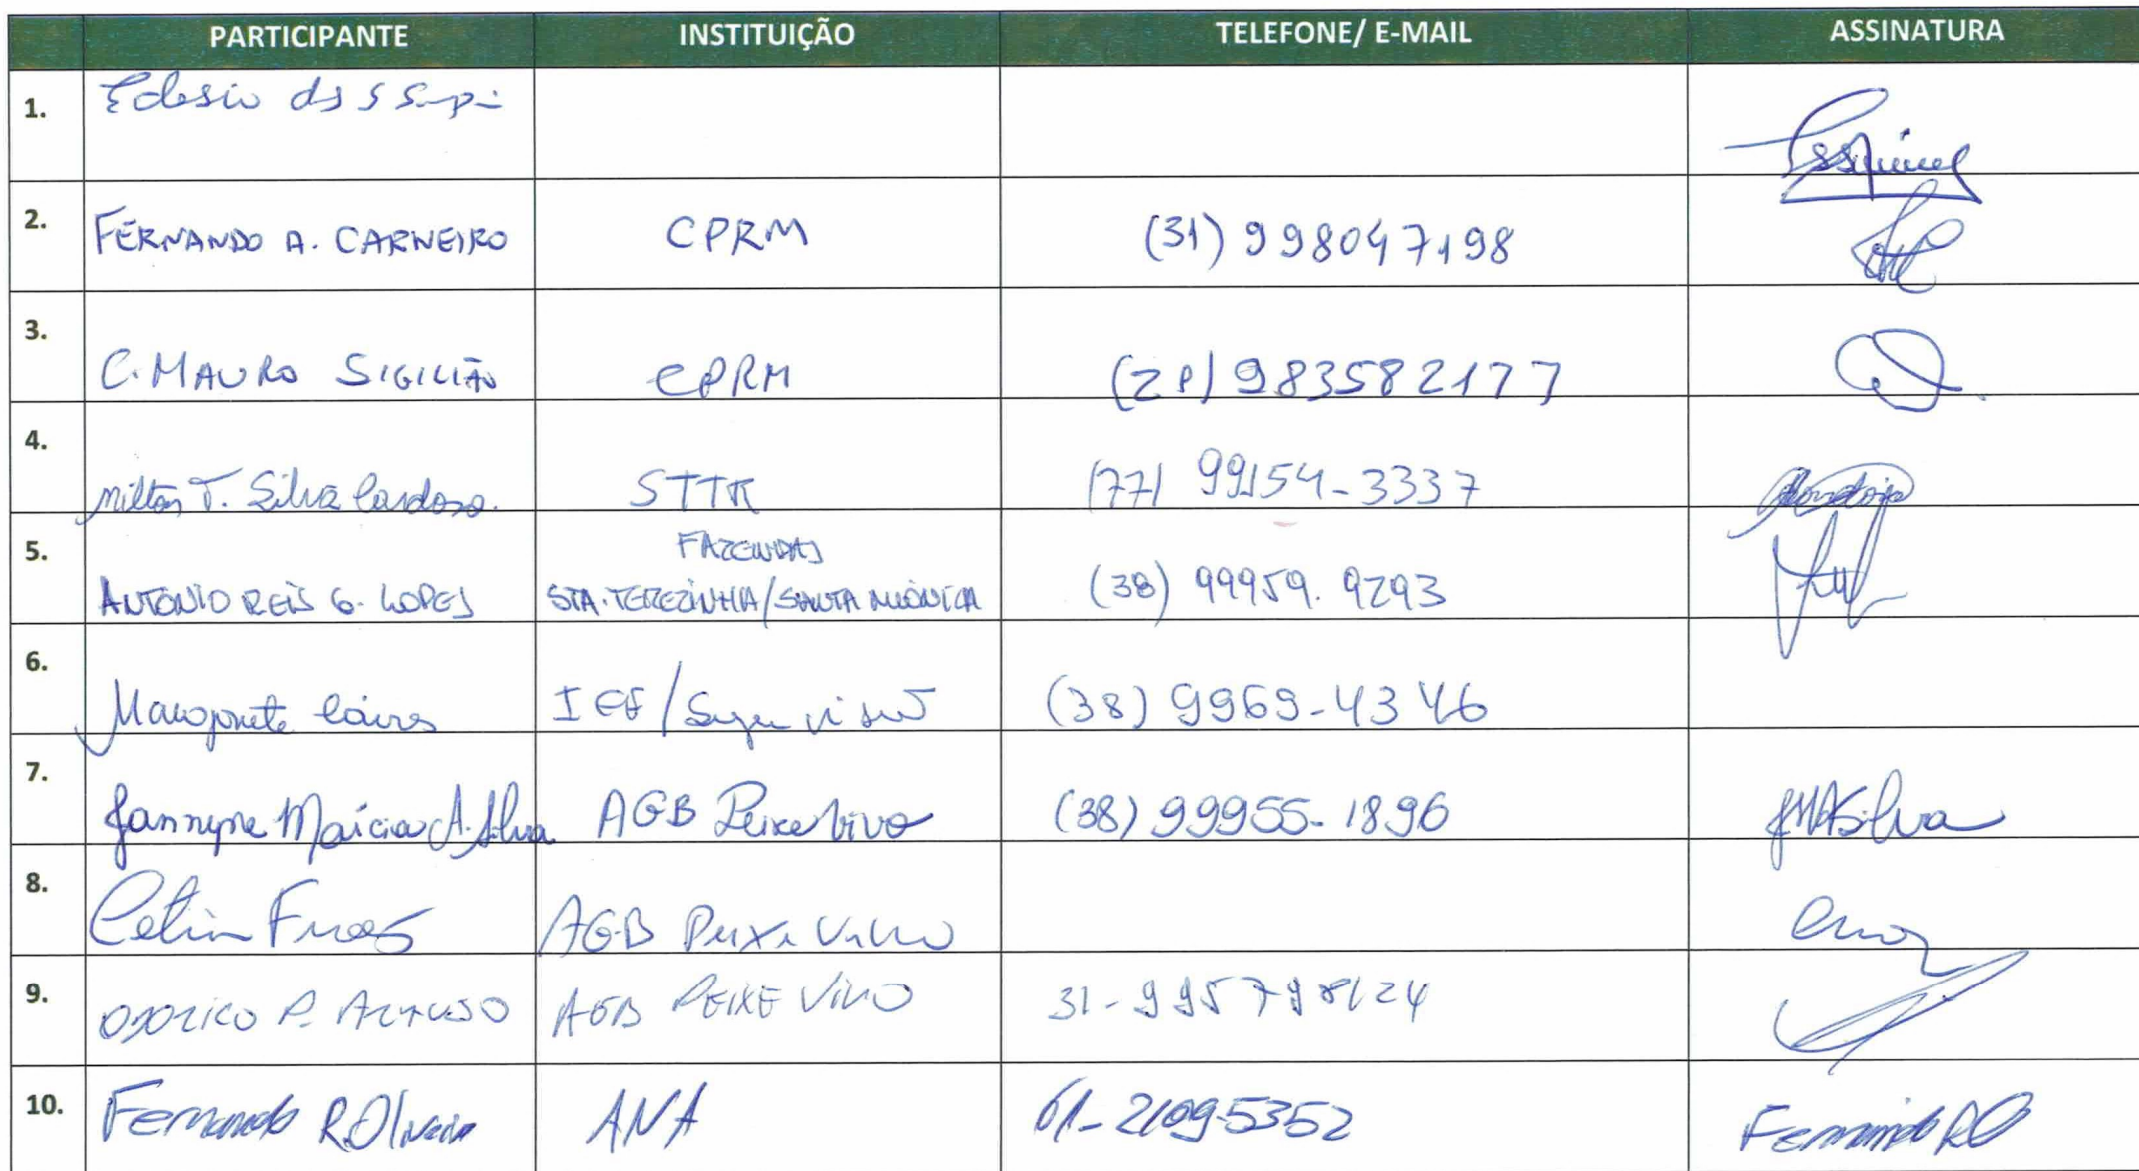 PARTICIPANTE INSTITUIÇÃO TELEFONE/ E-MAIL ASSINATURA
1. Edesio
2. FERNANDO A. CARNEIRO CPRM (31) 998047198
3. C. MAURO SIGILIÃO CPRM (21) 983582177
4. Milton T. Silva Cardoso. STTR (77) 99154-3337
5. ANTONIO REIS G. LOPES FAZENDAS
STA. TEREZINHA/SANTA MÔNICA (38) 99959.9293
6. Margarete Caires IEF/Supervisão (38) 9969-4346
7. Jannyne Márcia A. Silva AGB Peixe Vivo (38) 99955-1896 JMASilva
8. Célia Froes AGB Peixe Vivo
9. OSORICO P. ARAUJO AGB PEIXE VIVO
10. Fernando R. Oliveira ANA 61-2109-5352 Fernando RO